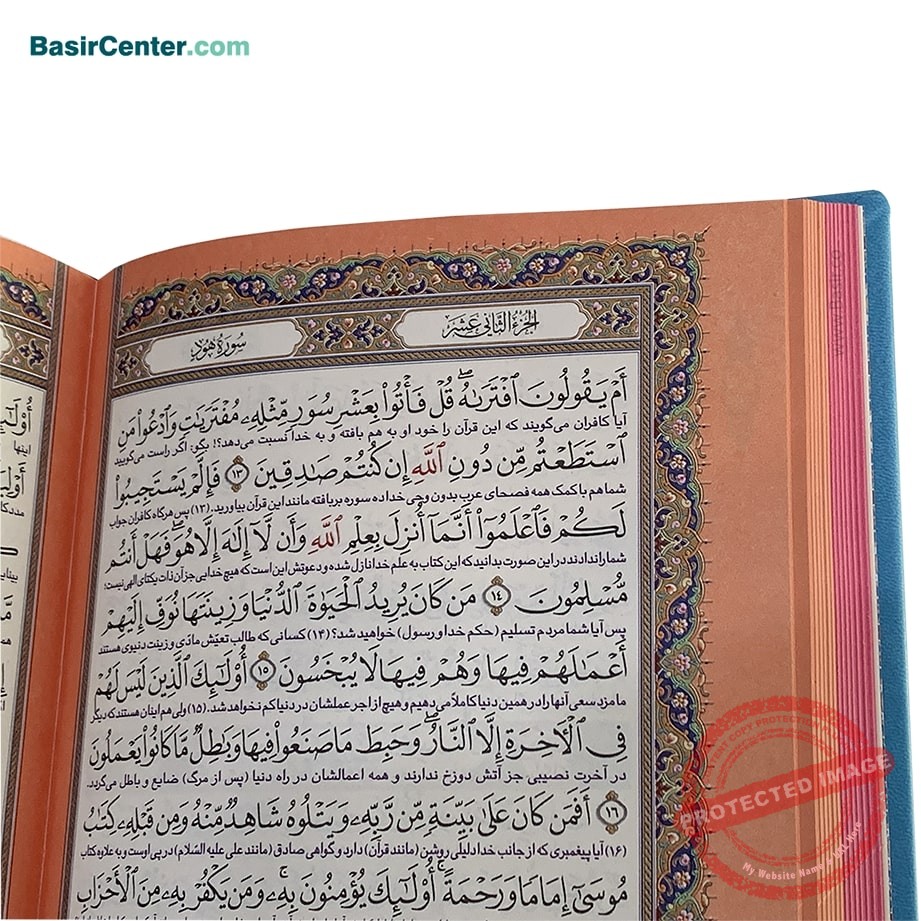 BasirCenter.com
الجزء الثانی عشر
سورة هود
أَمْ يَقُولُونَ ٱفْتَرَىٰهُ ۖ قُلْ فَأْتُوا۟ بِعَشْرِ سُوَرٍ مِّثْلِهِۦ مُفْتَرَيَـٰتٍ وَٱدْعُوا۟ مَنِ
آیا کافران می‌گویند که این قرآن را خود او به هم بافته و به خدا نسبت می‌دهد؟! بگو: اگر راست می‌گویید
ٱسْتَطَعْتُم مِّن دُونِ ٱللَّهِ إِن كُنتُمْ صَـٰدِقِينَ ١٣ فَإِلَّمْ يَسْتَجِيبُوا۟
شما هم با کمک همه فصحای عرب بدون وحی خدا ده سوره بربافته مانند این قرآن بیاورید. (۱۳) پس هرگاه کافران جواب
لَكُمْ فَٱعْلَمُوٓا۟ أَنَّمَآ أُنزِلَ بِعِلْمِ ٱللَّهِ وَأَن لَّآ إِلَـٰهَ إِلَّا هُوَ ۖ فَهَلْ أَنتُم
شما را ندادند در این صورت بدانید که این کتاب به علم خدا نازل شده و دعوتش این است که هیچ خدایی جز آن ذات یکتای الهی نیست؛
مُّسْلِمُونَ ١٤ مَن كَانَ يُرِيدُ ٱلْحَيَوٰةَ ٱلدُّنْيَا وَزِينَتَهَا نُوَفِّ إِلَيْهِمْ
پس آیا شما مردم تسلیم (حکم خدا و رسول) خواهید شد؟ (۱۴) کسانی که طالب تعیّش مادّی و زینت دنیوی هستند
أَعْمَـٰلَهُمْ فِيهَا وَهُمْ فِيهَا لَا يُبْخَسُونَ ١٥ أُو۟لَـٰٓئِكَ ٱلَّذِينَ لَيْسَ لَهُمْ
ما مزد سعی آنها را در همین دنیا کاملاً می‌دهیم و هیچ از اجر عملشان در دنیا کم نخواهد شد. (۱۵) ولی هم اینان هستند که دیگر
فِى ٱلْـَٔاخِرَةِ إِلَّا ٱلنَّارُ ۖ وَحَبِطَ مَا صَنَعُوا۟ فِيهَا وَبَـٰطِلٌ مَّا كَانُوا۟ يَعْمَلُونَ
در آخرت نصیبی جز آتش دوزخ ندارند و همه اعمالشان در راه دنیا (پس از مرگ) ضایع و باطل می‌گردد.
١٦ أَفَمَن كَانَ عَلَىٰ بَيِّنَةٍ مِّن رَّبِّهِۦ وَيَتْلُوهُ شَاهِدٌ مِّنْهُ وَمِن قَبْلِهِۦ كِتَـٰبُ
(۱۶) آیا پیغمبری که از جانب خدا دلیلی روشن (مانند قرآن) دارد و گواهی صادق (مانند علی علیه السّلام) در پی اوست و به علاوه کتاب
مُوسَىٰٓ إِمَامًا وَرَحْمَةً ۚ أُو۟لَـٰٓئِكَ يُؤْمِنُونَ بِهِۦ ۚ وَمَن يَكْفُرْ بِهِۦ مِنَ ٱلْأَحْزَابِ
PROTECTED IMAGE
My Website Name & URL Here